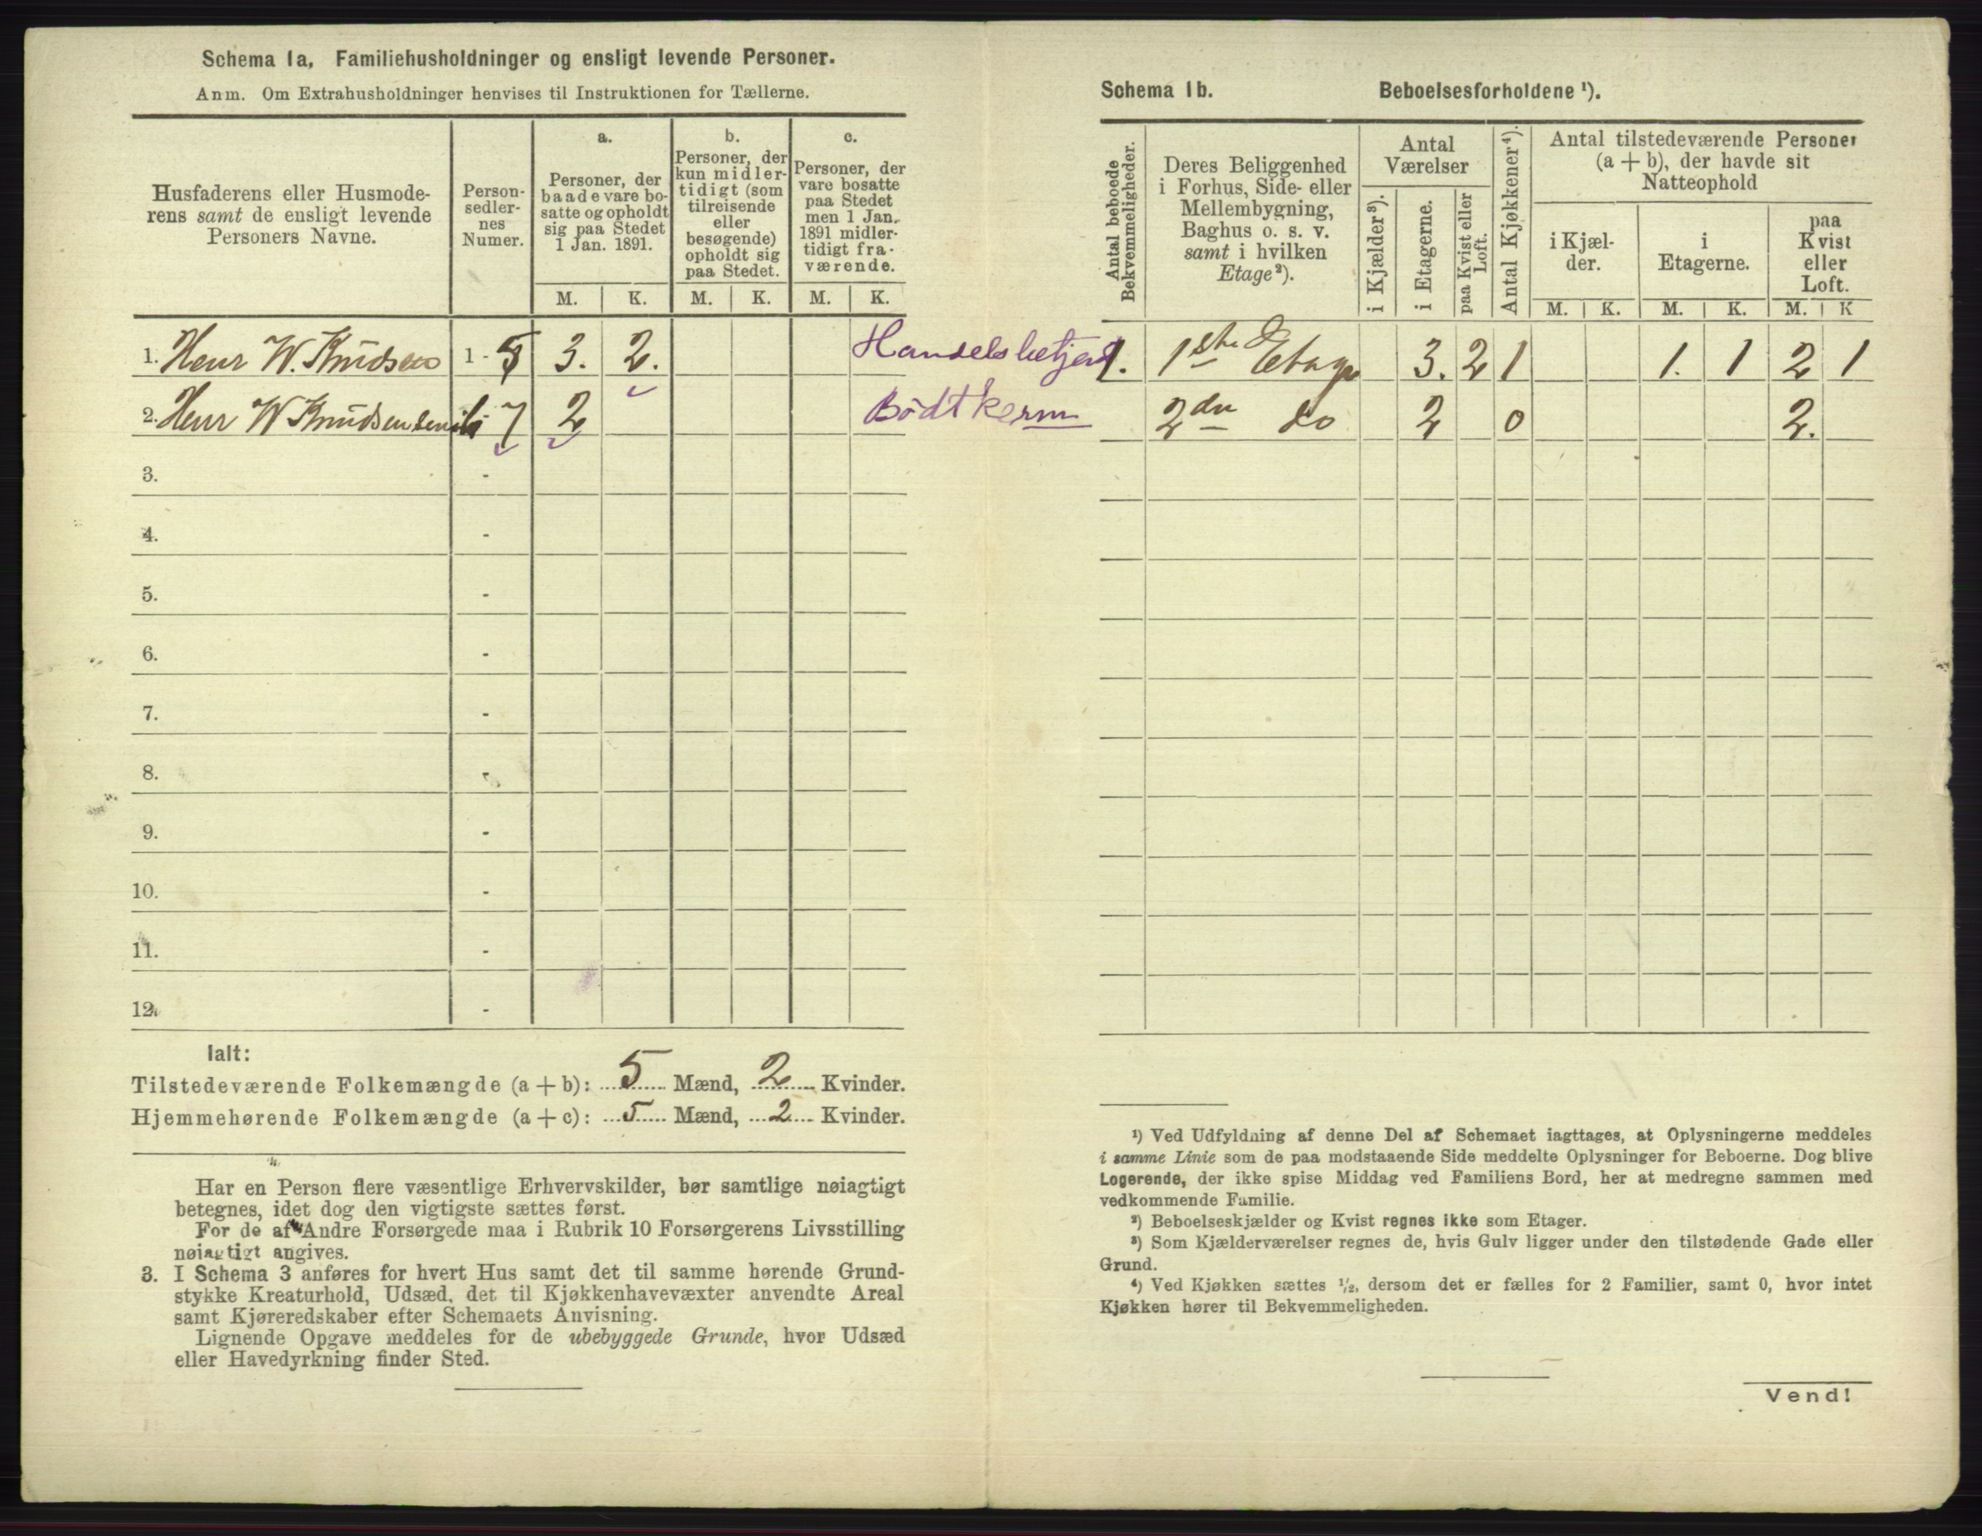 Schema 1a, Familiehusholdninger og ensligt levende Personer.
Anm. Om Extrahusholdninger henvises til Instruktionen for Tællerne.
Husfaderens eller Husmode-
rens samt de ensligt levende
Personers Navne.
Person-
sedler-
nes
Numer.
a.
Personer, der
baade vare bo-
satte og opholdt
sig paa Stedet
1 Jan. 1891.
b.
Personer, der
kun midler-
tidigt (som
tilreisende
eller
besøgende)
opholdt sig
paa Stedet.
c.
Personer, der
vare bosatte
paa Stedet
men 1 Jan.
1891 midler-
tidigt fra-
værende.
M. K. M. K. M. K.
1. Herr W. Knudsen 1 - 5 3. 2. Handelsbetjent
2. Herr W Knudsen 7 2 Bödtkerm
3. -
4. -
5. -
6. -
7. -
8. -
9. -
10. -
11. -
12. -
Ialt:
Tilstedeværende Folkemængde (a + b): 5 Mænd, 2 Kvinder.
Hjemmehørende Folkemængde (a + c): 5 Mænd, 2 Kvinder.
Har en Person flere væsentlige Erhvervskilder, bør samtlige nøiagtigt
betegnes, idet dog den vigtigste sættes først.
For de af Andre Forsørgede maa i Rubrik 10 Forsørgerens Livsstilling
nøiagtigt angives.
3. I Schema 3 anføres for hvert Hus samt det til samme hørende Grund-
stykke Kreaturhold, Udsæd, det til Kjøkkenhavevæxter anvendte Areal
samt Kjøreredskaber efter Schemaets Anvisning.
Lignende Opgave meddeles for de ubebyggede Grunde, hvor Udsæd
eller Havedyrkning finder Sted.
Schema 1b. Beboelsesforholdene ¹).
Antal beboede
Bekvemmeligheder.
Deres Beliggenhed
i Forhus, Side- eller
Mellembygning,
Baghus o. s. v.
samt i hvilken
Etage ²).
Antal
Værelser
i Kjælder ³).
i Etagerne.
paa Kvist eller
Loft.
Antal Kjøkkener ⁴).
Antal tilstedeværende Personer
(a + b), der havde sit
Natteophold
i Kjæl-
der.
i
Etagerne.
paa
Kvist
eller
Loft.
M. K. M. K. M. K
1. 1ste Etage 3. 2 1 1. 1 2 1
2den do 2 0 2.
¹) Ved Udfyldning af denne Del af Schemaet iagttages, at Oplysningerne meddeles
i samme Linie som de paa modstaaende Side meddelte Oplysninger for Beboerne. Dog blive
Logerende, der ikke spise Middag ved Familiens Bord, her at medregne sammen med
vedkommende Familie.
²) Beboelseskjælder og Kvist regnes ikke som Etager.
³) Som Kjælderværelser regnes de, hvis Gulv ligger under den tilstødende Gade eller
Grund.
⁴) Ved Kjøkken sættes ¹/₂, dersom det er fælles for 2 Familier, samt 0, hvor intet
Kjøkken hører til Bekvemmeligheden.
Vend!